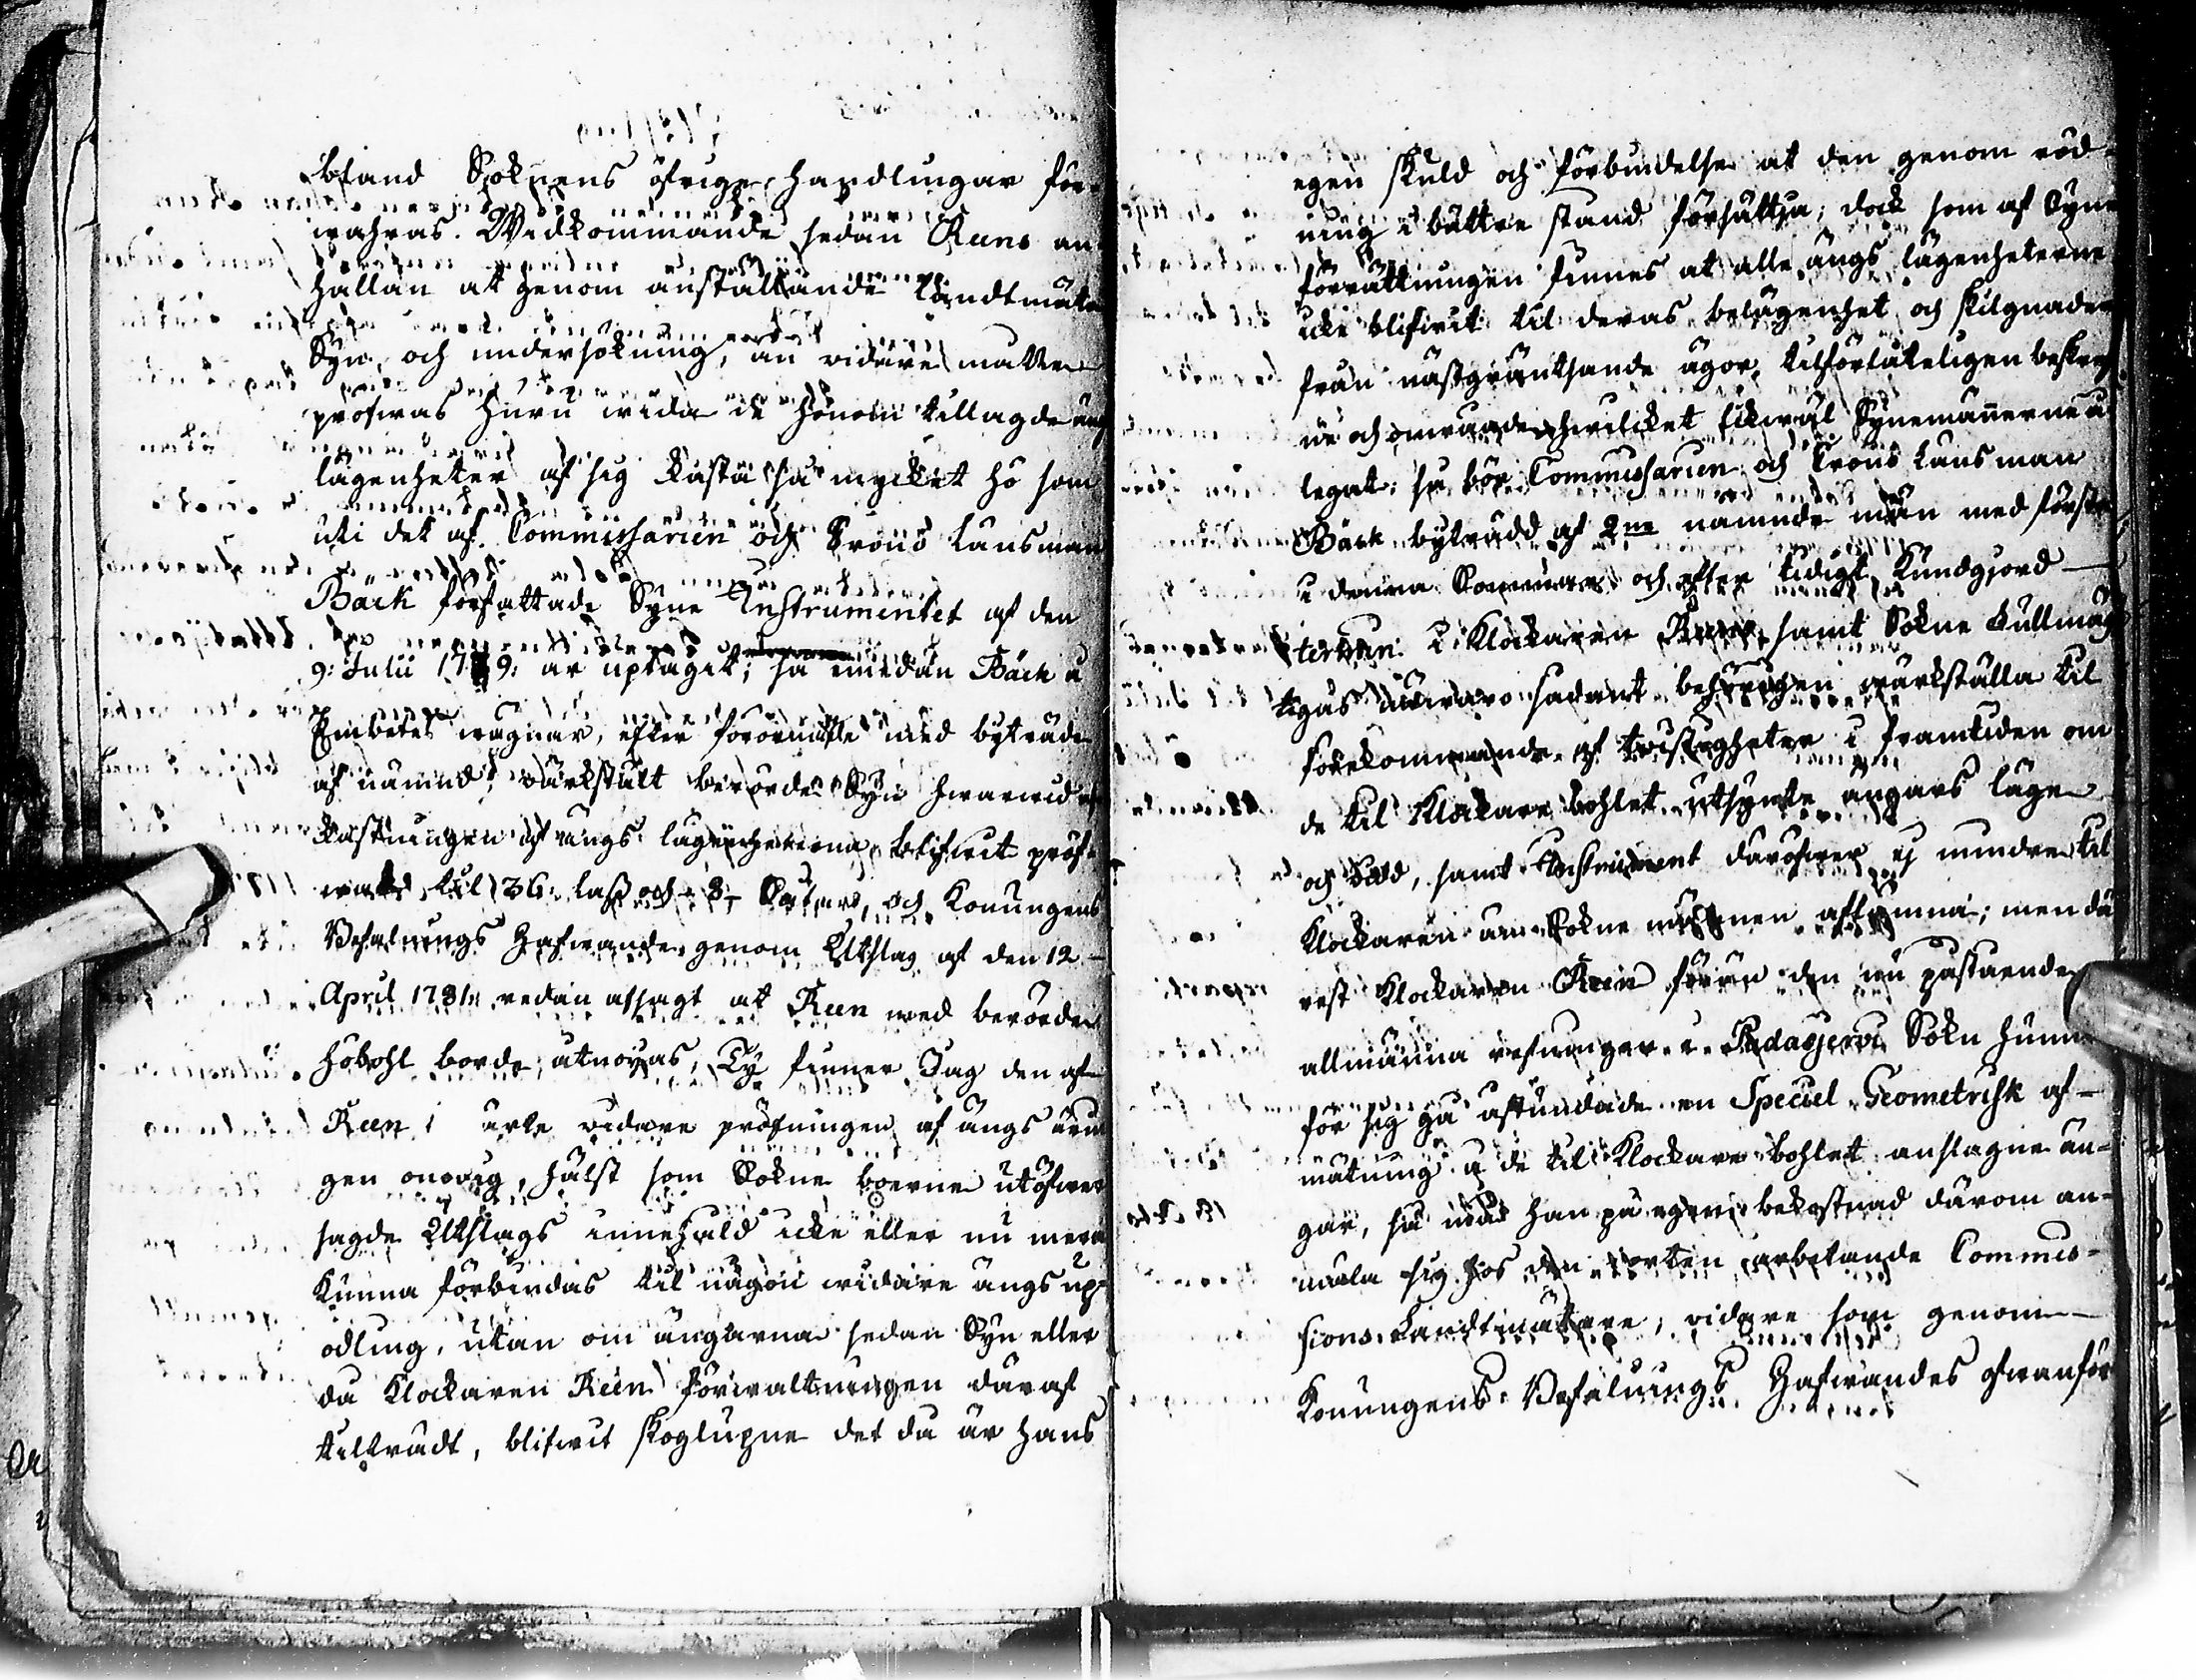 ibland Soknens öfrige handlingar för-
wahras. Widkommande sedan Reens an-
hållan at genom anställande Landtmätare
Syn, och undersökning, än vidare måtte
pröfwas huru wida de honom tillagde ängs
lägenheter af sig kasta så mycket hö som
uti det af Commissarien och Crono Länsman
Bäck författade Syne Instrumentet af den
9: Julii 1779: är uptagit; så emedan Bäck å
Embetes wägnar, efter förordnande med byträde
af nämnd, värkstält berörde Syn hwarwid af-
kastningen af ängs lägenheterna blifwit pröf-
wad til 26. lass och Konungens
Befalnings Hafwande genom Utslag af den 12
April 1781 redan afsagt at Reen med berörde
höbohl borde åtnöyas, Ty finner Jag den af
Reen urte vidare pröfningen af ängs
gen onödig, hälst som Sokne boerne utöfwer
sagde Utslags innehåld icke eller nu mera
kunna förbindas til någon widare ängs up-
odling, utan om ängarna sedan Syn eller
då Klockaren Reen förwaltningen däraf
tillträdt, blifwit skoglupne det då är hans
egen skuld och förbindelse at den genom röd-
ning i bättre stånd försättja; dock som af Syne
förrättningen finnes at alle ängs lägenheterne
icke blifwit til deras belägenhet och skilgnader
från näst gräntsande ägor, tilförlåteligen beskref-
ne och omrade hwilcket likwäl Synemännerne å-
legat; så bör Commissarien och Crono Länsman
Bäck byträdd af 2ne nämnde män med första
i denna Sommar och efter tidigt Kundgjord
termin i Klockaren Reens samt Sokne Fullmäg
tigas närwaro sådant behörigen wärkställa til
förekommande af twistigheter i framtiden om
de til Klockare bohlet utsynte ängars läge
och vidd, samt Instrument däröfwer ej mindre til
Klockaren än Sokne männen aflemna; men där
rest Klockaren Reen förän den nu påstående
allmänna refningen i Padasjervi Sokn hunne
för sig gå åstundade en Speciel Geometrisk af-
mätning å de til Klockare bohlet anslagne än-
gar, så må han på egen bekostnad därom an-
mäla sig hos den i orten arbetande Commis-
sions Landtmätare; vidare som genom
Konungens Befalnings Hafwandes ofwanför